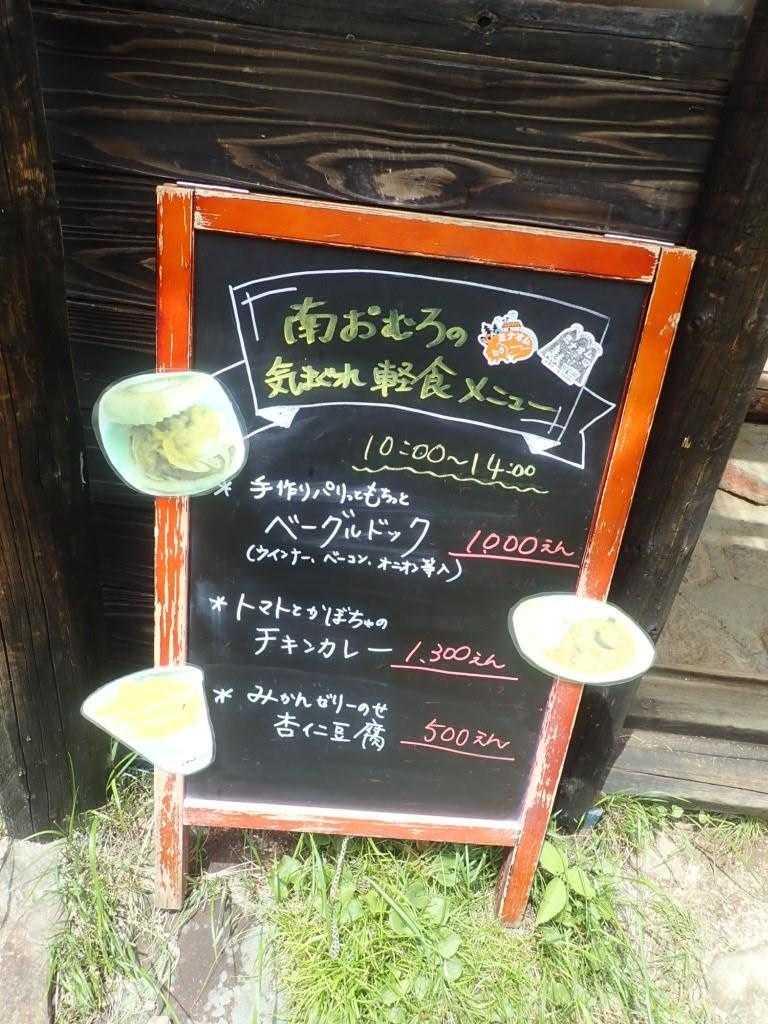 南おむろの
気まぐれ 軽食メニュー
10:00~14:00
* 手作りパリっともちっと
ベーグルドック 1000えん
(ウインナー、ベーコン、オニオン等入)
* トマトとかぼちゃの
チキンカレー 1,300えん
* みかんゼリーのせ
杏仁豆腐 500えん